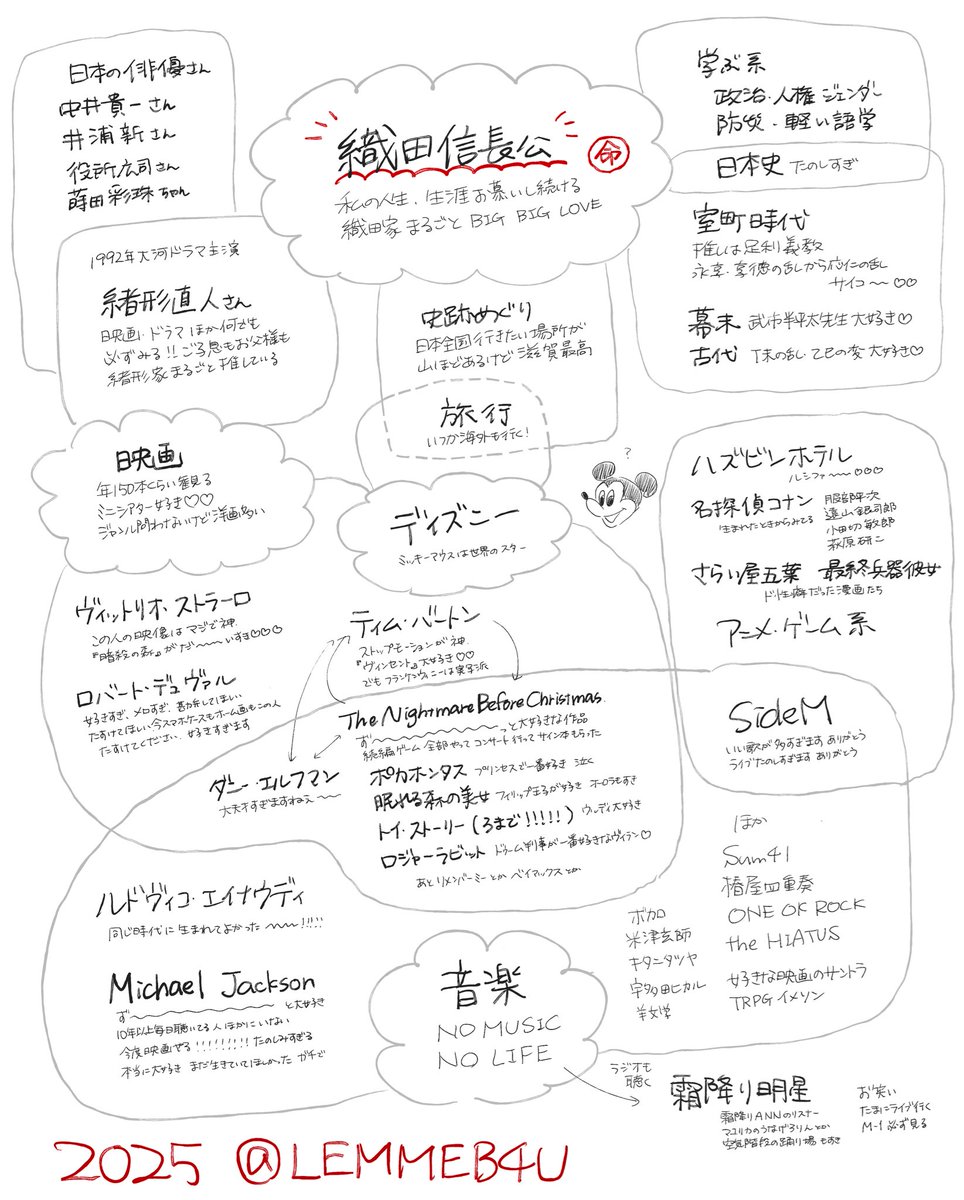 日本の俳優さん
中井貴一さん
井浦新さん
役所広司さん
蒔田彩珠ちゃん
1992年大河ドラマ主演
緒形直人さん
映画・ドラマほか何でも
必ずみる!!ご子息もお父様も
緒形家まるごと推している
織田信長公
命
私の人生、生涯お慕いし続ける
織田家まるごと BIG BIG LOVE
史跡めぐり
日本全国行きたい場所が
山ほどあるけど滋賀最高
旅行
いつか海外も行く!
学ぶ系
政治・人権 ジェンダー
防災・軽い語学
日本史 たのしすぎ
室町時代
推しは足利義教
永享・享徳の乱から応仁の乱
サイコ〜〜♡♡
幕末 武市半平太先生大好き♡
古代 丁未の乱・乙巳の変 大好き♡
映画
年150本くらい観る
ミニシアター好き♡♡
ジャンル問わないけど洋画多い
ディズニー
ミッキーマウスは世界のスター
?
ハズビンホテル
ルシファー〜〜〜♡♡♡
名探偵コナン
生まれたときからみてる
服部平次
遠山銀司郎
小田切敏郎
萩原研二
さらい屋五葉 最終兵器彼女
ド性癖だった漫画たち
アニメ・ゲーム系
ヴィットリオ・ストラーロ
この人の映像はマジで神
『暗殺の森』がだ〜〜〜いすき♡♡♡
ロバート・デュヴァル
好きすぎ、メロすぎ、勘弁してほしい
たすけてほしい、今スマホケースもホーム画もこの人
たすけてください、好きすぎます
ティム・バートン
ストップモーションが神
『ヴィンセント』大好き♡♡
でもフランケンウィニーは実写派
The Nightmare Before Christmas
ず〜〜〜〜〜〜〜〜っと大好きな作品
続編ゲーム全部やってコンサート行ってサイン本もらった
ダニー・エルフマン
大天才すぎますねえ〜〜
ポカホンタス プリンセスで一番好き 泣く
眠れる森の美女 フィリップ王子が好き オーロラもすき
トイ・ストーリー(3まで!!!!!) ウッディ大好き
ロジャーラビット ドゥーム判事が一番好きなヴィラン♡
あとリメンバーミーとかベイマックスとか
SideM
いい歌が多すぎます ありがとう
ライブたのしすぎます ありがとう
ほか
Sum41
椿屋四重奏
ONE OK ROCK
the HIATUS
好きな映画のサントラ
TRPGイメソン
ボカロ
米津玄師
キタニタツヤ
宇多田ヒカル
羊文学
ルドヴィコ・エイナウディ
同じ時代に生まれてよかった〜〜!!!!!
Michael Jackson
ず〜〜〜〜〜〜〜〜っと大好き
10年以上毎日聴いてる人ほかにいない
今度映画やる!!!!!!!!!たのしみすぎる
本当に大好き まだ生きていてほしかった ガチで
音楽
NO MUSIC
NO LIFE
ラジオも
聴く
霜降り明星
霜降りANNのリスナー
マユリカのうなげろりんとか
空気階段の踊り場もすき
お笑い
たまにライブ行く
M-1必ず見る
2025 @LEMMEB4U